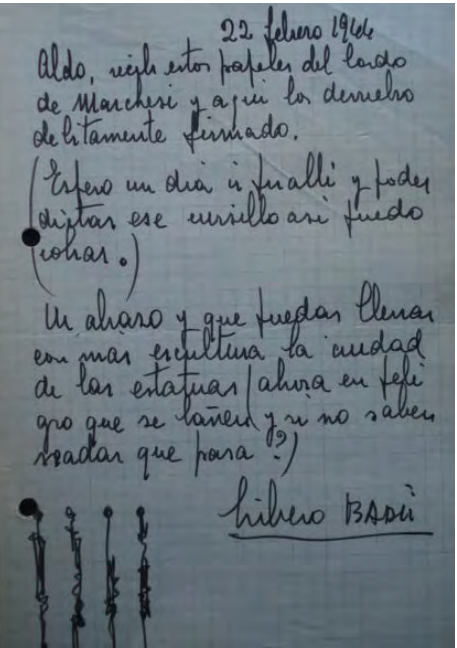 22 febrero 1966
Aldo, recibi estos papeles del
de Marchesi y aqui los devuelvo
debitamente firmado.
(Espero un dia ir por alli y poder
dictar ese cursillo asi puedo
cobrar.)
Un abrazo y que puedas llenar
con mas escultura la ciudad
de las estatuas (ahora en peli
gro que se bañen y si no saben
nadar que pasa?)
Libero BADII